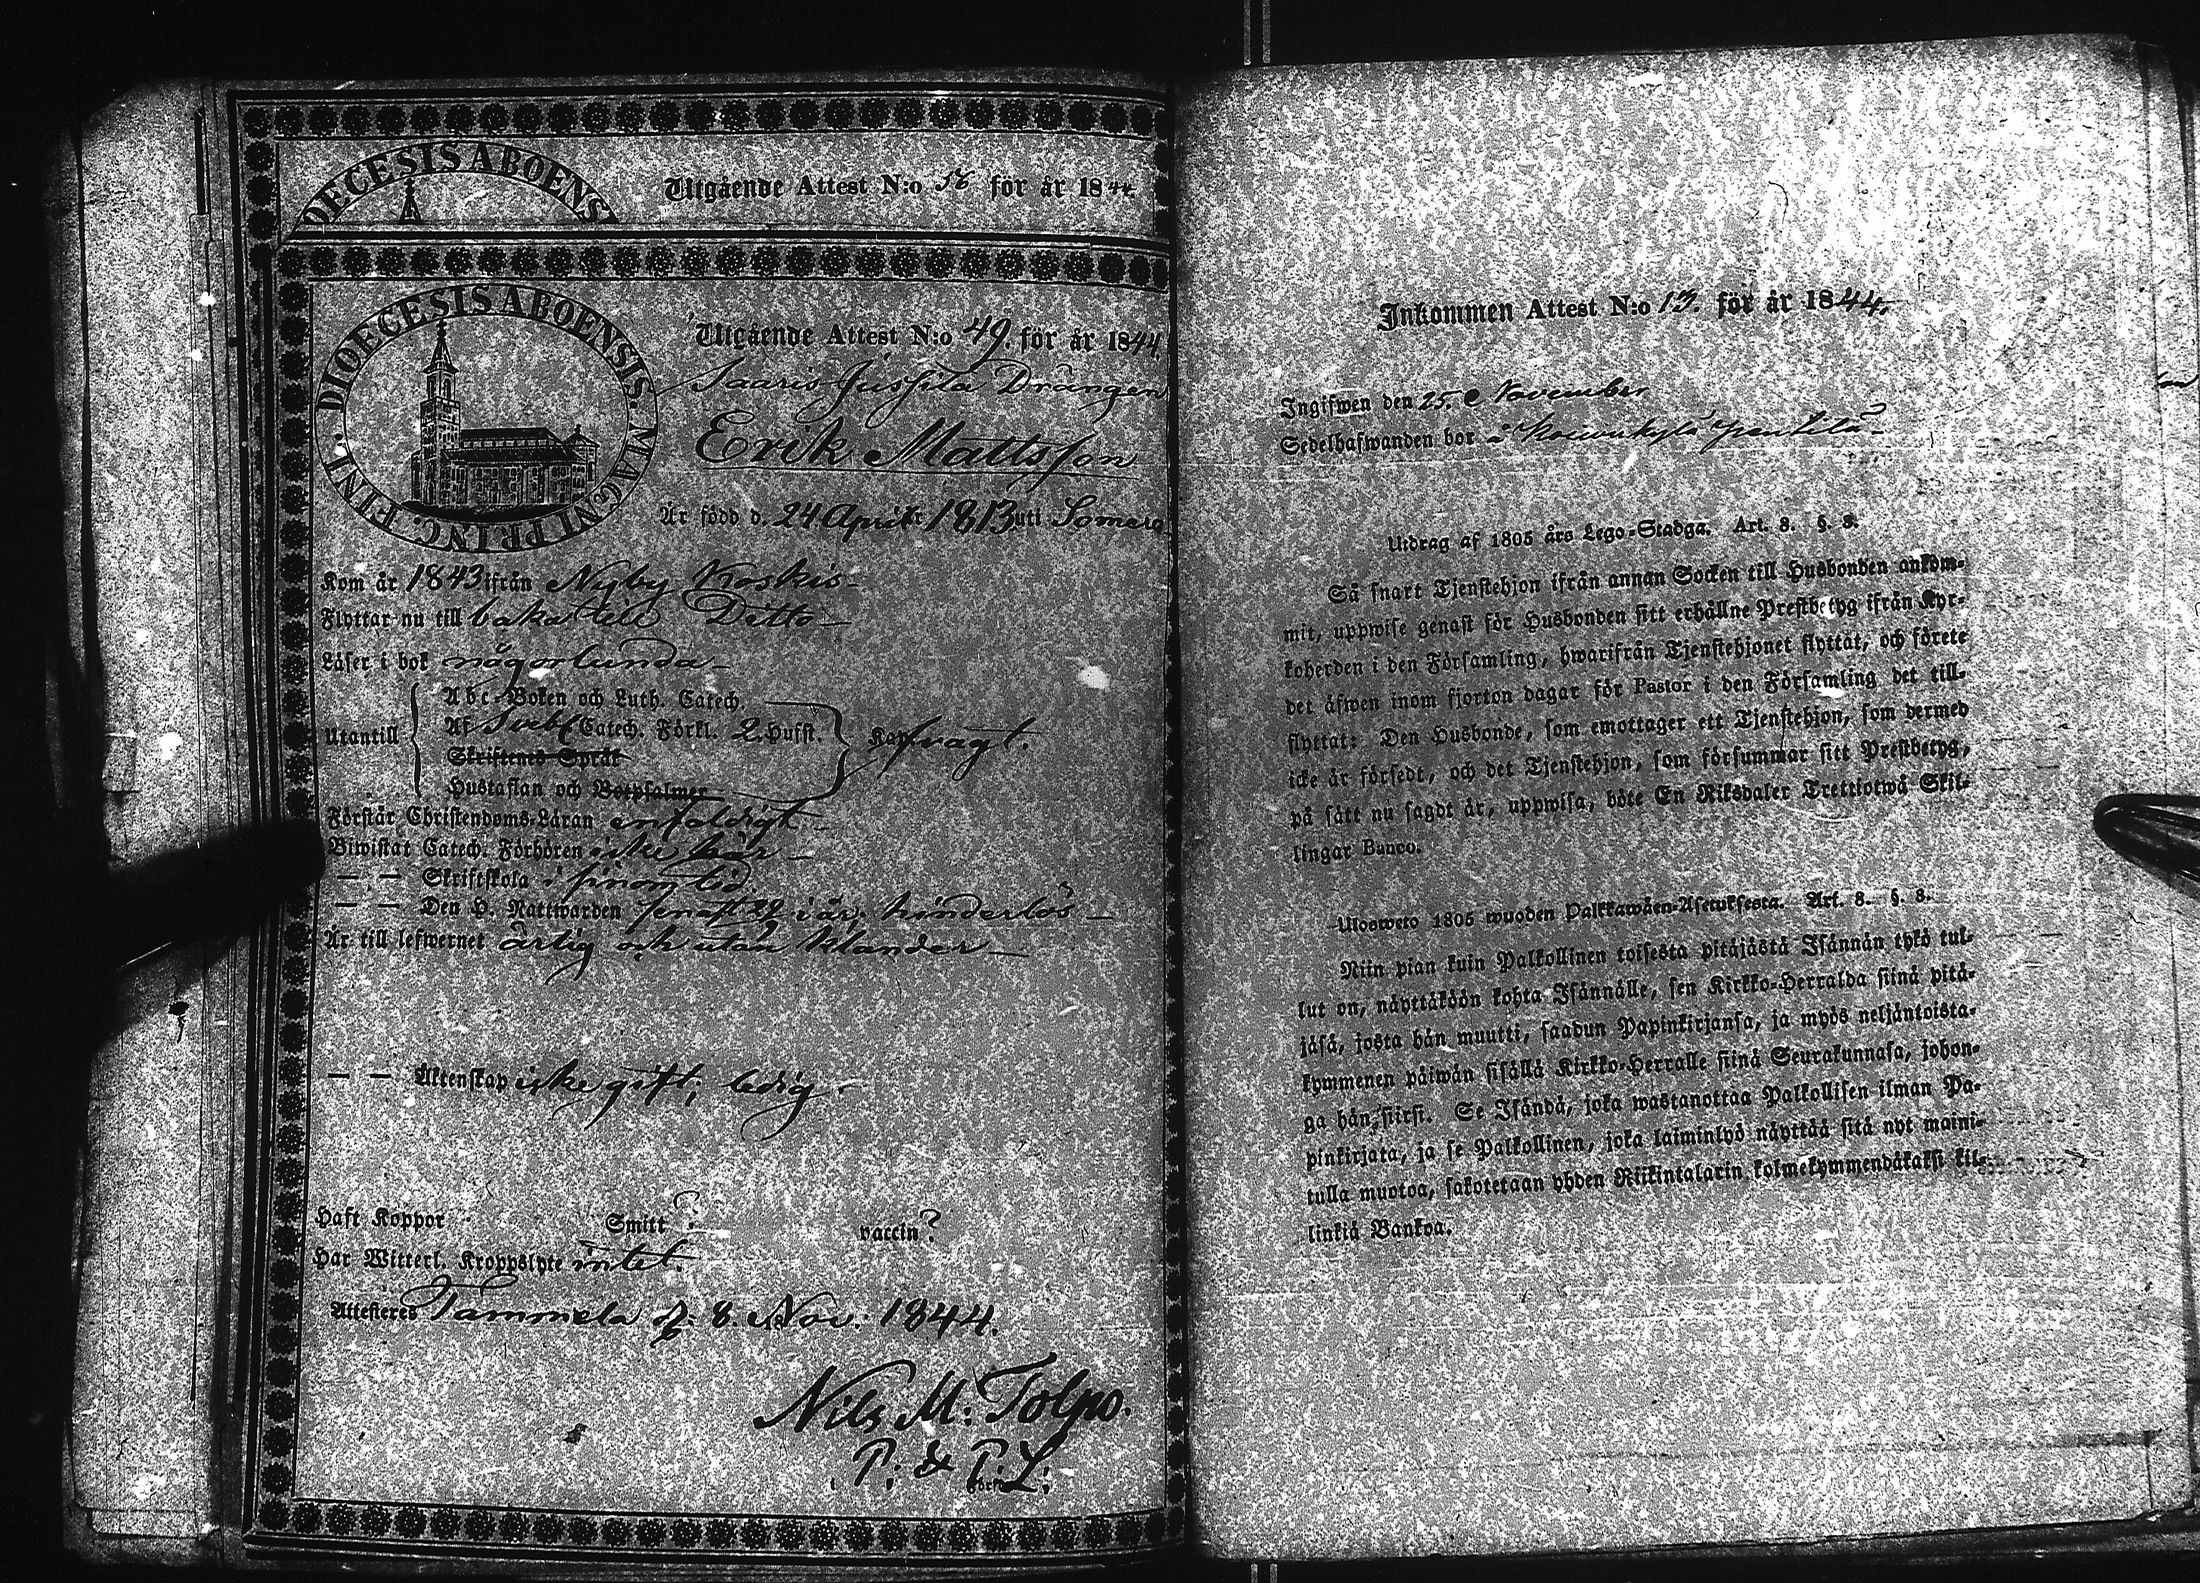 DIOECESIS ABOENSI
Utgående Attest N:o 56 för år 1844.
DIOECESIS ABOENSIS. MAGNI PRINC. FINL.
Utgående Attest N:o 49. för år 1844.
Saaris Jussila Drängen
Erik Mattsson
Är född d. 24 April 1813 uti Somero
Kom år 1843 ifrån Nyby Koskis
Flyttar nu till baka till Ditto
Läser i bok någorlunda
Abc-Boken och Luth. Catech.
Utantill Af Svebl Catech. Förkl. 2. Hufst. svagt.
Skriftenes Språk
Hustaflan och Botpsalmer
Förstår Christendoms-Läran enfaldigt
Biwistat Catech. Förhören icke här
— — Skriftskola i sinom tid.
— — Den H. Nattwarden senast 29 i år. hinderlös
Är till lefwernet ärlig och utan klander
— — Äktenskap icke gift; ledig.
Haft Koppor Smitt ? vaccin ?
Har Witterl. Kroppslyte intet.
Attesteres Tammela d. 8. Nov. 1844.
Nils M: Tolpo.
P: & P: L:
Inkommen Attest N:o 13. för år 1844.
Ingifwen den 25. November
Sedelhafwanden bor i Koivukylä Penttilä
Utdrag af 1805 års Lego-Stadga. Art. 8. §. 8.
Så snart Tjenstehjon ifrån annan Socken till Husbonden ankom-
mit, uppwise genast för Husbonden sitt erhållne Prestbetyg ifrån Kyr-
koherden i den Församling, hwarifrån Tjenstehjonet flyttat, och förete
det äfwen inom fjorton dagar för Pastor i den Församling det till-
flyttat: Den Husbonde, som emottager ett Tjenstehjon, som dermed
icke är försedt, och det Tjenstehjon, som försummar sitt Prestbetyg,
på sätt nu sagdt är, uppwisa, böte En Riksdaler Trettiotwå Skil-
lingar Banco.
Uloswето 1805 wuoden Palkkawäen-Asetuksesta. Art. 8. §. 8.
Niin pian kuin Palkollinen toisesta pitäjästä Isännän tykö tul-
lut on, näyttäköön kohta Isännälle, sen Kirkko-Herralda siinä pitä-
jäsä, josta hän muutti, saadun Papinkirjansa, ja myös neljäntoista-
kymmenen päiwän sisällä Kirkko-Herralle siinä Seurakunnasa, johon-
ga hän siirsi. Se Isändä, joka wastanottaa Palkollisen ilman Pa-
pinkirjata, ja se Palkollinen, joka laiminlyö näyttää sitä nyt maini-
tulla muotoa, sakotetaan yhden Riikintalarin kolmekymmendäkaksi kil-
linkiä Bankoa.